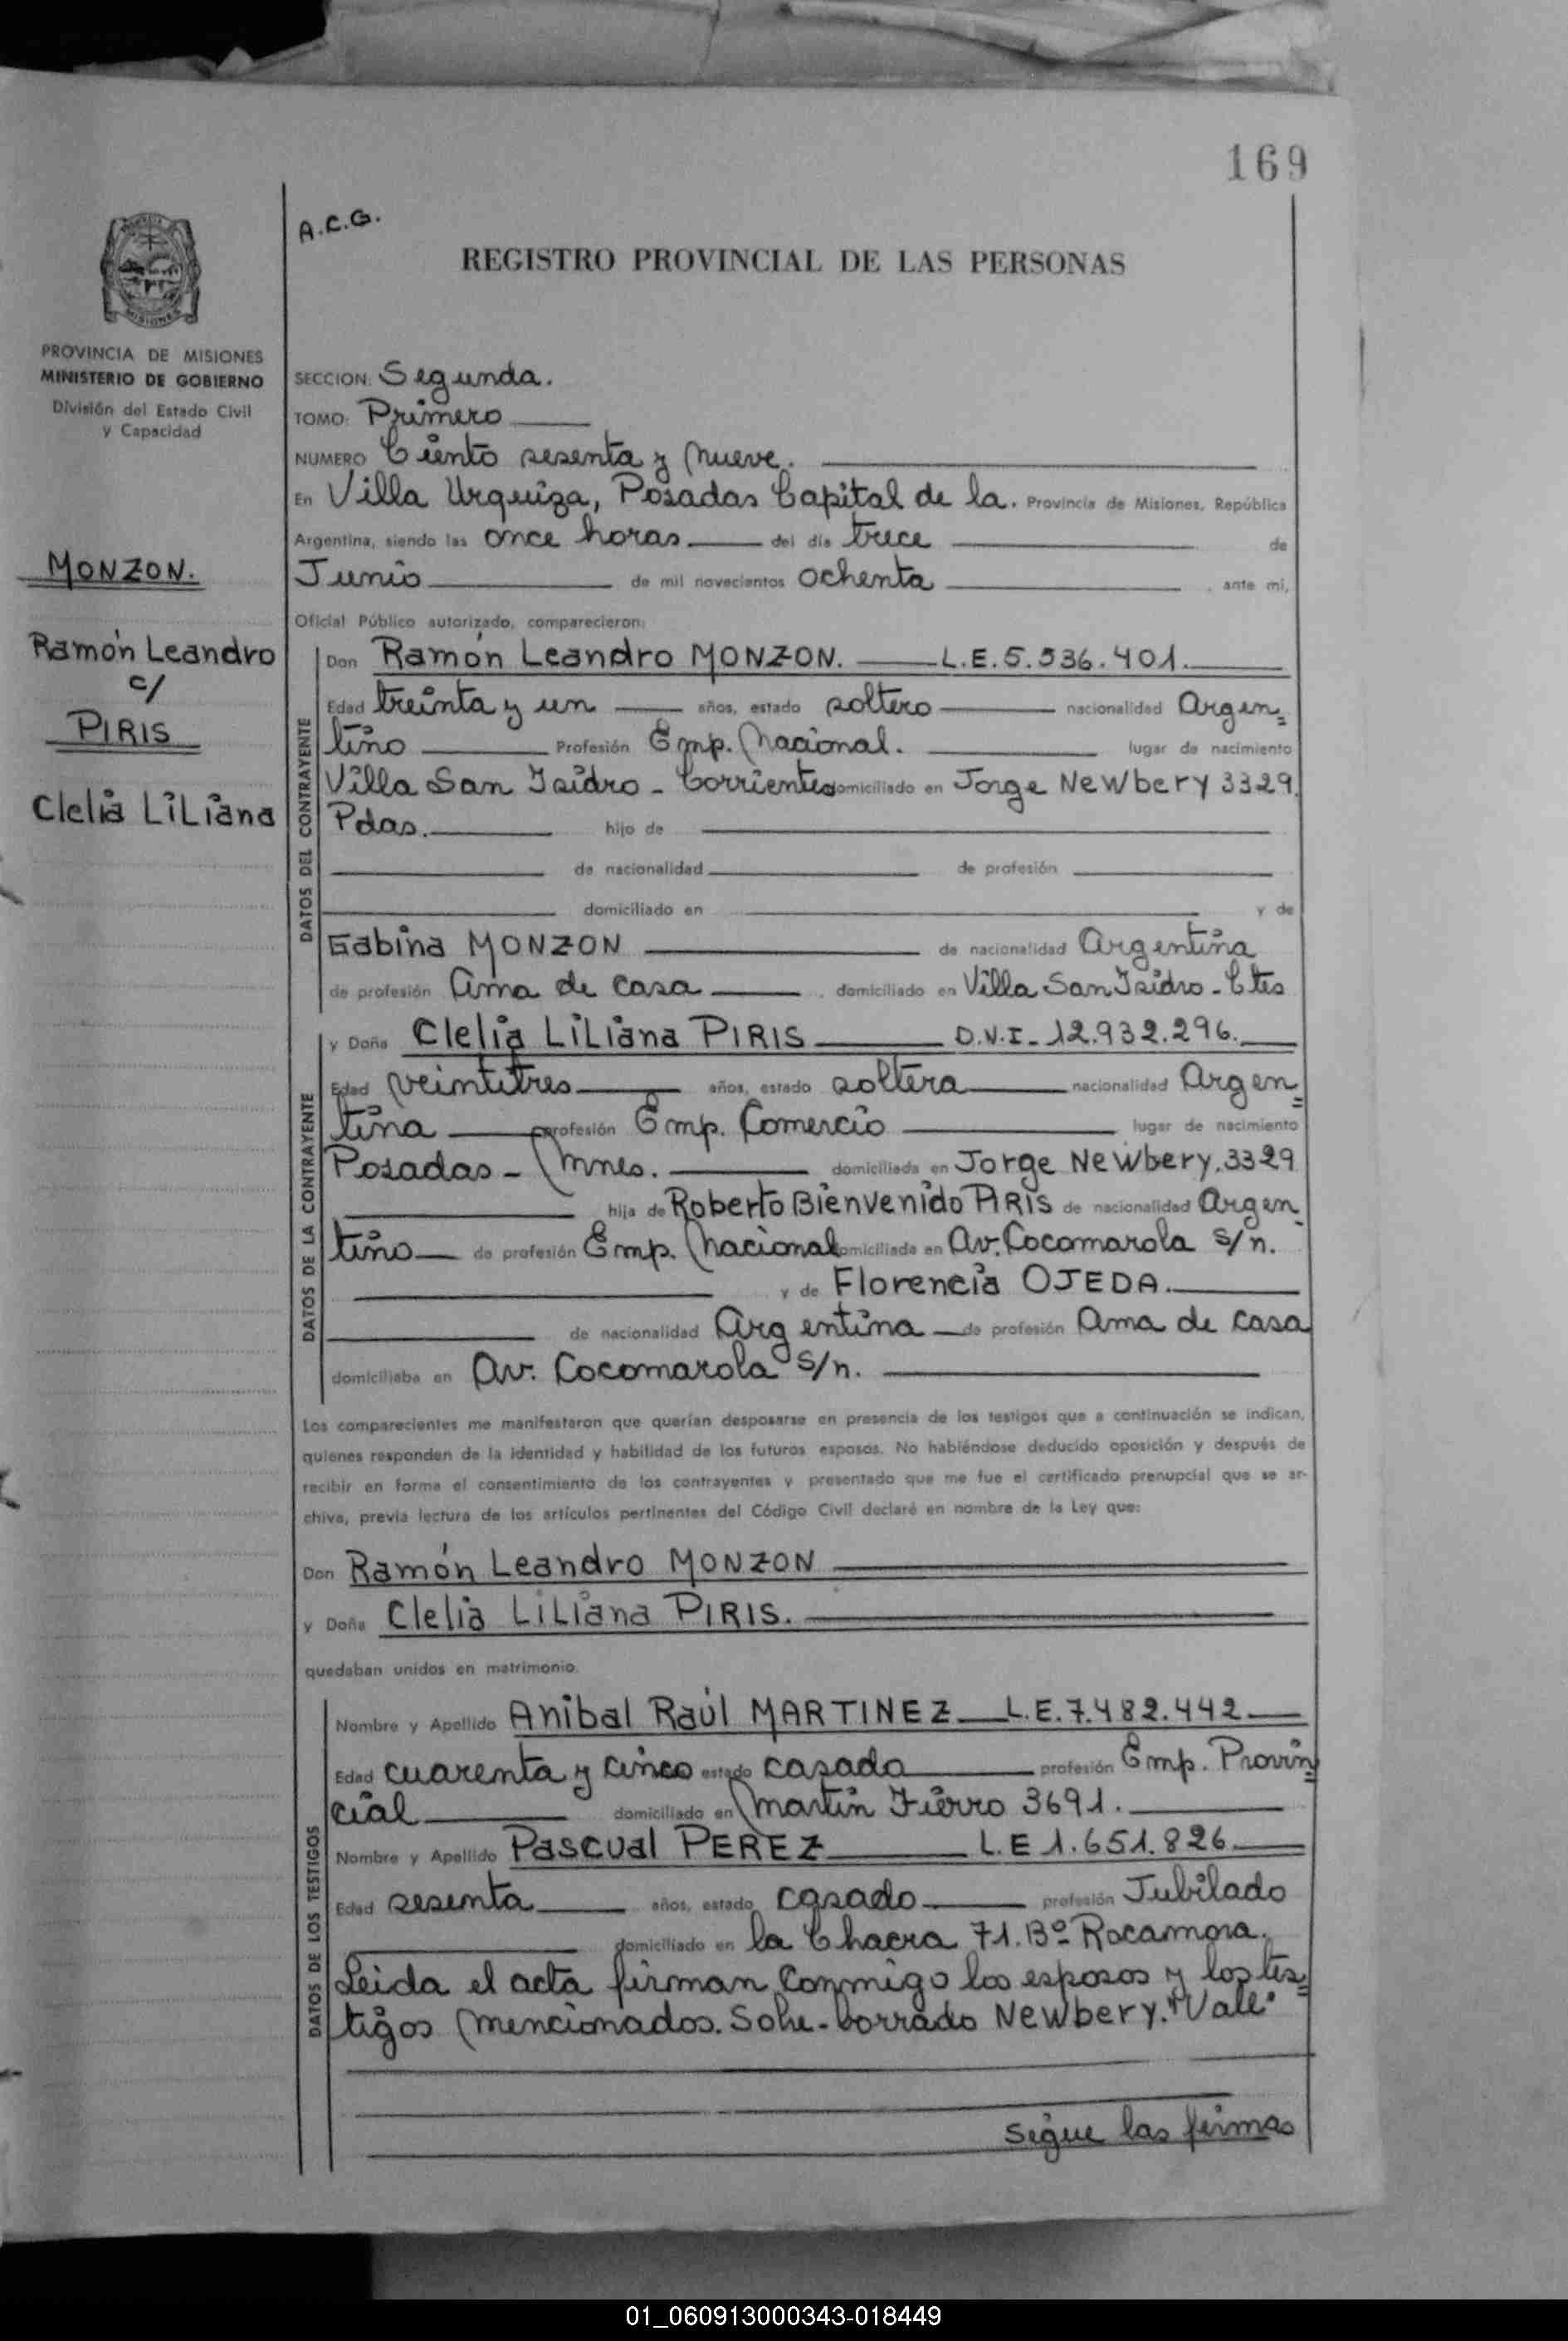 169
A.C.G.
REGISTRO PROVINCIAL DE LAS PERSONAS
MISIONES
PROVINCIA DE MISIONES
MINISTERIO DE GOBIERNO
División del Estado Civil
y Capacidad
MONZON.
Ramón Leandro
c/
PIRIS
Clelia Liliana
SECCION: Segunda.
TOMO: Primero
NUMERO Ciento sesenta y nueve.
En Villa Urquiza, Posadas Capital de la. Provincia de Misiones, República
Argentina, siendo las once horas del día trece de
Junio de mil novecientos ochenta , ante mi,
Oficial Público autorizado, comparecieron:
DATOS DEL CONTRAYENTE
Don Ramón Leandro MONZON. L.E. 5.536.401.
Edad treinta y un años, estado soltero nacionalidad Argen=
tino Profesión Emp. Nacional. lugar de nacimiento
Villa San Isidro - Corrientes domiciliado en Jorge Newbery 3329.
Pdas. hijo de
de nacionalidad de profesión
domiciliado en y de
Gabina MONZON de nacionalidad Argentina
de profesión Ama de casa , domiciliado en Villa San Isidro - Ctes
DATOS DE LA CONTRAYENTE
y Doña Clelia Liliana PIRIS D.N.I. 12.932.296.
Edad veintitres años, estado soltera nacionalidad Argen=
tina profesión Emp. Comercio lugar de nacimiento
Posadas - Mnes. domiciliada en Jorge Newbery. 3329
hija de Roberto Bienvenido PIRIS de nacionalidad Argen
tino de profesión Emp. Nacional domiciliado en Av. Cocomarola s/n.
y de Florencia OJEDA.
de nacionalidad Argentina de profesión Ama de casa
domiciliaba en Av. Cocomarola s/n.
Los comparecientes me manifestaron que querían desposarse en presencia de los testigos que a continuación se indican,
quienes responden de la identidad y habilidad de los futuros esposos. No habiéndose deducido oposición y después de
recibir en forma el consentimiento de los contrayentes y presentado que me fue el certificado prenupcial que se ar-
chiva, previa lectura de los artículos pertinentes del Código Civil declaré en nombre de la Ley que:
Don Ramón Leandro MONZON
y Doña Clelia Liliana PIRIS.
quedaban unidos en matrimonio.
DATOS DE LOS TESTIGOS
Nombre y Apellido Anibal Raúl MARTINEZ L.E. 7.482.442
Edad cuarenta y cinco estado casado profesión Emp. Provin=
cial domiciliado en Martín Fierro 3691.
Nombre y Apellido Pascual PEREZ L.E 1.651.826
Edad sesenta años, estado casado profesión Jubilado
domiciliado en la Chacra 71. Bº Rocamora.
Leida el acta firman conmigo los esposos y los tes=
tigos mencionados. Sobre-borrado Newbery. "Vale"
sigue las firmas
01_060913000343-018449